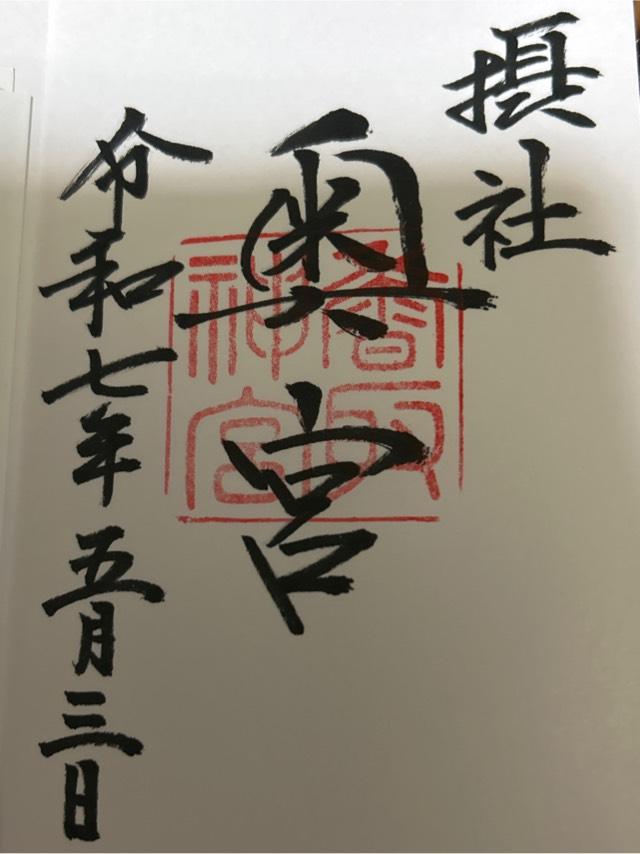 摂社
奥宮
香取神宮
令和七年五月三日